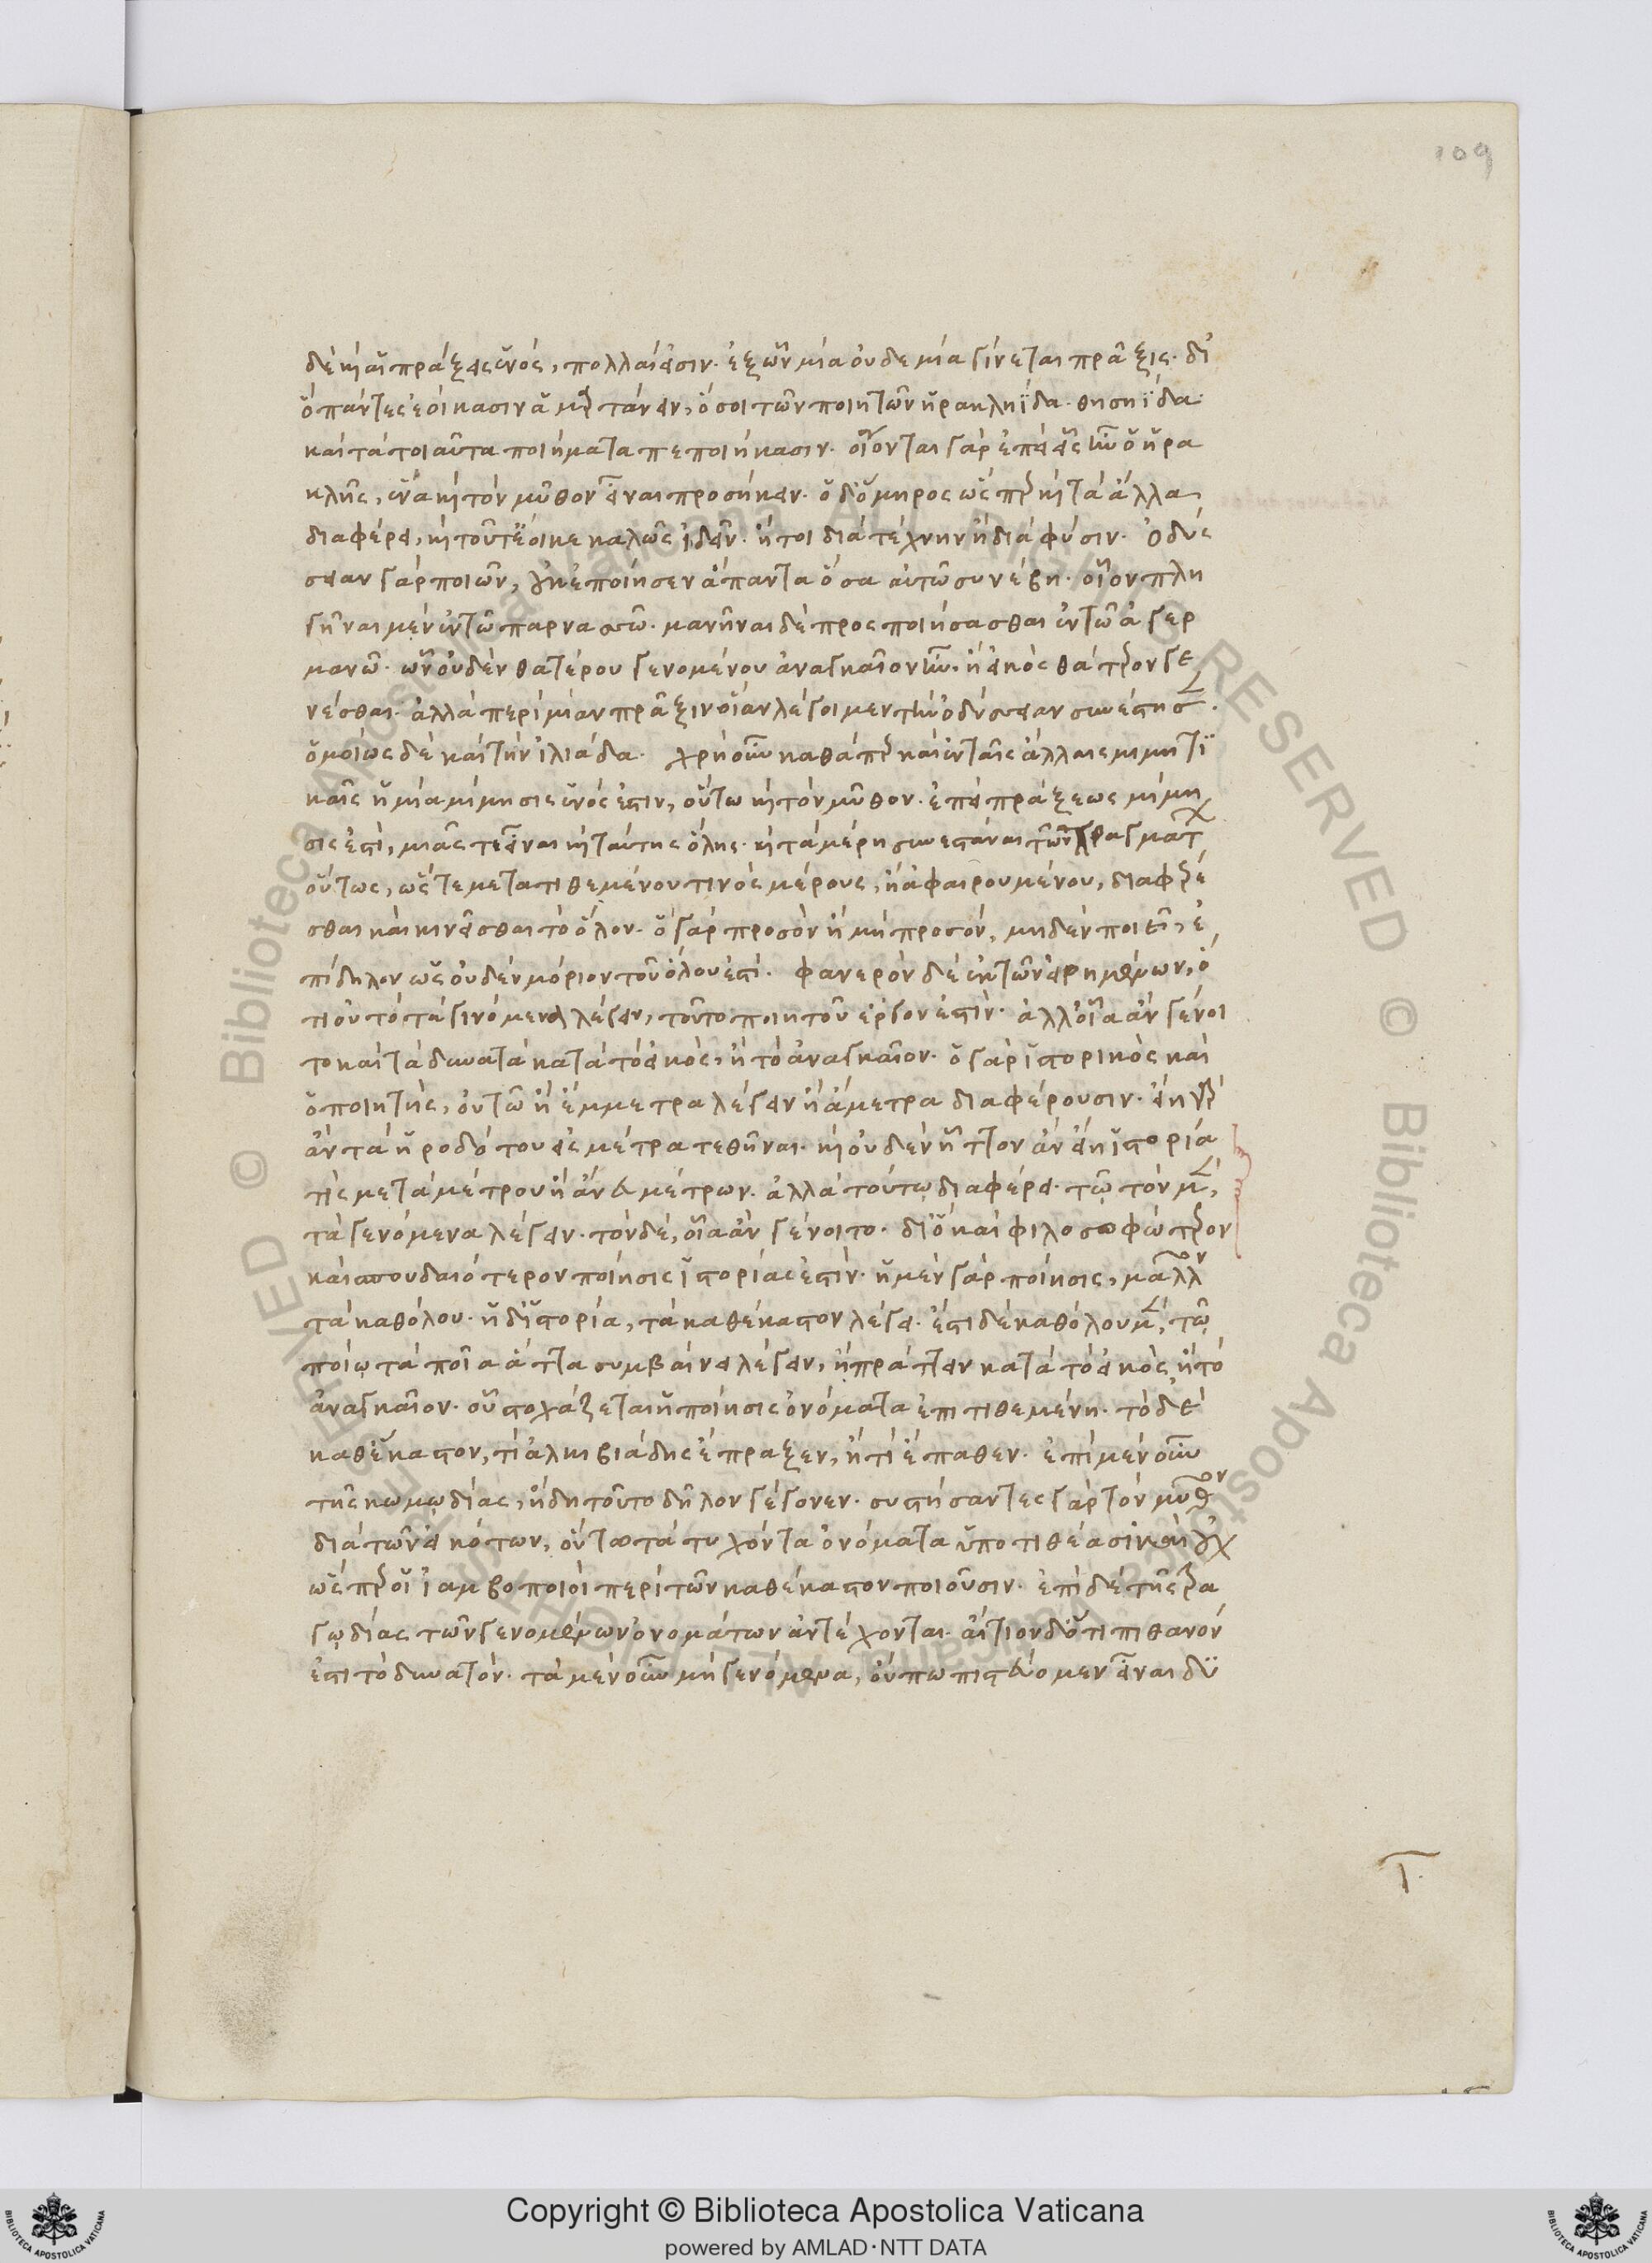 109
δὲ καὶ αἱ πράξεις ἑνός, πολλαί εἰσιν. ἐξ ὧν μία οὐδεμία γίνεται πρᾶξις. δι
ὃ πάντες ἐοίκασιν ἁμαρτάνειν, ὅσοι τῶν ποιητῶν ἡρακληΐδα. θησηΐδα.
καὶ τὰ τοιαῦτα ποιήματα πεποιήκασιν. οἴονται γὰρ ἐπεὶ εἷς ἦν ὁ ἡρα
κλῆς, ἕνα καὶ τὸν μῦθον εἶναι προσήκειν. ὁ δ' ὅμηρος ὥσπερ καὶ τὰ ἄλλα
διαφέρει, καὶ τοῦτ' ἔοικε καλῶς ἰδεῖν. ἤτοι διὰ τέχνην ἢ διὰ φύσιν. Ὀδύσ
σειαν γὰρ ποιῶν, οὐκ ἐποίησεν ἅπαντα ὅσα αὐτῶ συνέβη. οἷον πλη
γῆναι μὲν ἐν τῶ παρνασσῶ. μανῆναι δὲ προσποιήσασθαι ἐν τῶ ἀγερ
μανῶ. ὧν οὐδὲν θατέρου γενομένου ἀναγκαῖον ἦν. ἢ εἰκὸς θάτερον γε
νέσθαι. ἀλλὰ περὶ μίαν πρᾶξιν οἵαν λέγοιμεν τὴν ὀδύσσειαν συνέστησ.
ὁμοίως δὲ καὶ τὴν ἰλιάδα. χρὴ οὖν καθάπερ καὶ ἐν ταῖς ἄλλαις μιμητι
καῖς ἡ μία μίμησις ἑνός ἐστιν, οὕτω καὶ τὸν μῦθον. ἐπεὶ πράξεως μίμη
σίς ἐστι, μιᾶς τε εἶναι καὶ ταύτης ὅλης. καὶ τὰ μέρη συνεστάναι τῶν πραγμάτ
οὕτως, ὥστε μετατιθεμένου τινὸς μέρους, ἢ ἀφαιρουμένου, διαφερέ
σθαι καὶ κινεῖσθαι τὸ ὅλον. ὃ γὰρ προσὸν ἢ μὴ προσόν, μηδὲν ποιεῖ, ἐ
πίδηλον ὡς οὐδὲν μόριον τοῦ ὅλου ἐστί. φανερὸν δὲ ἐκ τῶν εἰρημένων, ὅ
τι οὐ τὸ τὰ γινόμενα λέγειν, τοῦτο ποιητοῦ ἔργον ἐστίν. ἀλλ' οἷα ἂν γένοι
το καὶ τὰ δυνατὰ κατὰ τὸ εἰκός, ἢ τὸ ἀναγκαῖον. ὁ γὰρ ἱστορικὸς καὶ
ὁ ποιητής, οὐ τῶ ἢ ἔμμετρα λέγειν ἢ ἄμετρα διαφέρουσιν. εἴη γὰρ
ἂν τὰ ἡροδότου εἰς μέτρα τεθῆναι. καὶ οὐδὲν ἧττον ἂν εἴη ἱστορία
τις μετὰ μέτρου ἢ ἄνευ μέτρων. ἀλλὰ τούτω διαφέρει. τῶ τὸν μὲν,
τὰ γενόμενα λέγειν. τὸν δέ, οἷα ἂν γένοιτο. διὸ καὶ φιλοσοφώτερον
καὶ σπουδαιότερον ποίησις ἱστορίας ἐστίν. ἡ μὲν γὰρ ποίησις, μᾶλλον
τὰ καθόλου. ἡ δ' ἱστορία, τὰ καθέκαστον λέγει. ἔστι δὲ καθόλου μέν, τῶ
ποίω τὰ ποῖα ἄττα συμβαίνει λέγειν, ἢ πράττειν κατὰ τὸ εἰκὸς, ἢ τὸ
ἀναγκαῖον. οὗ στοχάζεται ἡ ποίησις ὀνόματα ἐπιτιθεμένη. τὸ δὲ
καθέκαστον, τί ἀλκιβιάδης ἔπραξεν, ἢ τί ἔπαθεν. ἐπὶ μὲν οὖν
τῆς κωμωδίας, ἤδη τοῦτο δῆλον γέγονεν. συστήσαντες γὰρ τὸν μῦθον
διὰ τῶν εἰκότων, οὕτω τὰ τυχόντα ὀνόματα ὑποτιθέασι καὶ οὐχ
ὥσπερ οἱ ἰαμβοποιοὶ περὶ τῶν καθέκαστον ποιοῦσιν. ἐπὶ δὲ τῆς τρα
γωδίας τῶν γενομένων ὀνομάτων ἀντέχονται. αἴτιον δ' ὅτι πιθανόν
ἐστι τὸ δυνατόν. τὰ μὲν οὖν μὴ γενόμενα, οὔπω πιστεύομεν εἶναι δυ
Copyright © Biblioteca Apostolica Vaticana
powered by AMLAD·NTT DATA